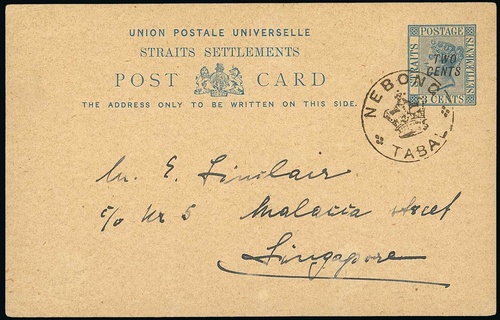 UNION POSTALE UNIVERSELLE
STRAITS SETTLEMENTS
POST CARD
THE ADDRESS ONLY TO BE WRITTEN ON THIS SIDE.
STRAITS
POSTAGE
SETTLEMENTS
TWO
CENTS
3 CENTS
NEBONG
TABAL
Mr. E. Sinclair
c/o Nr 5 Malacca street
Singapore